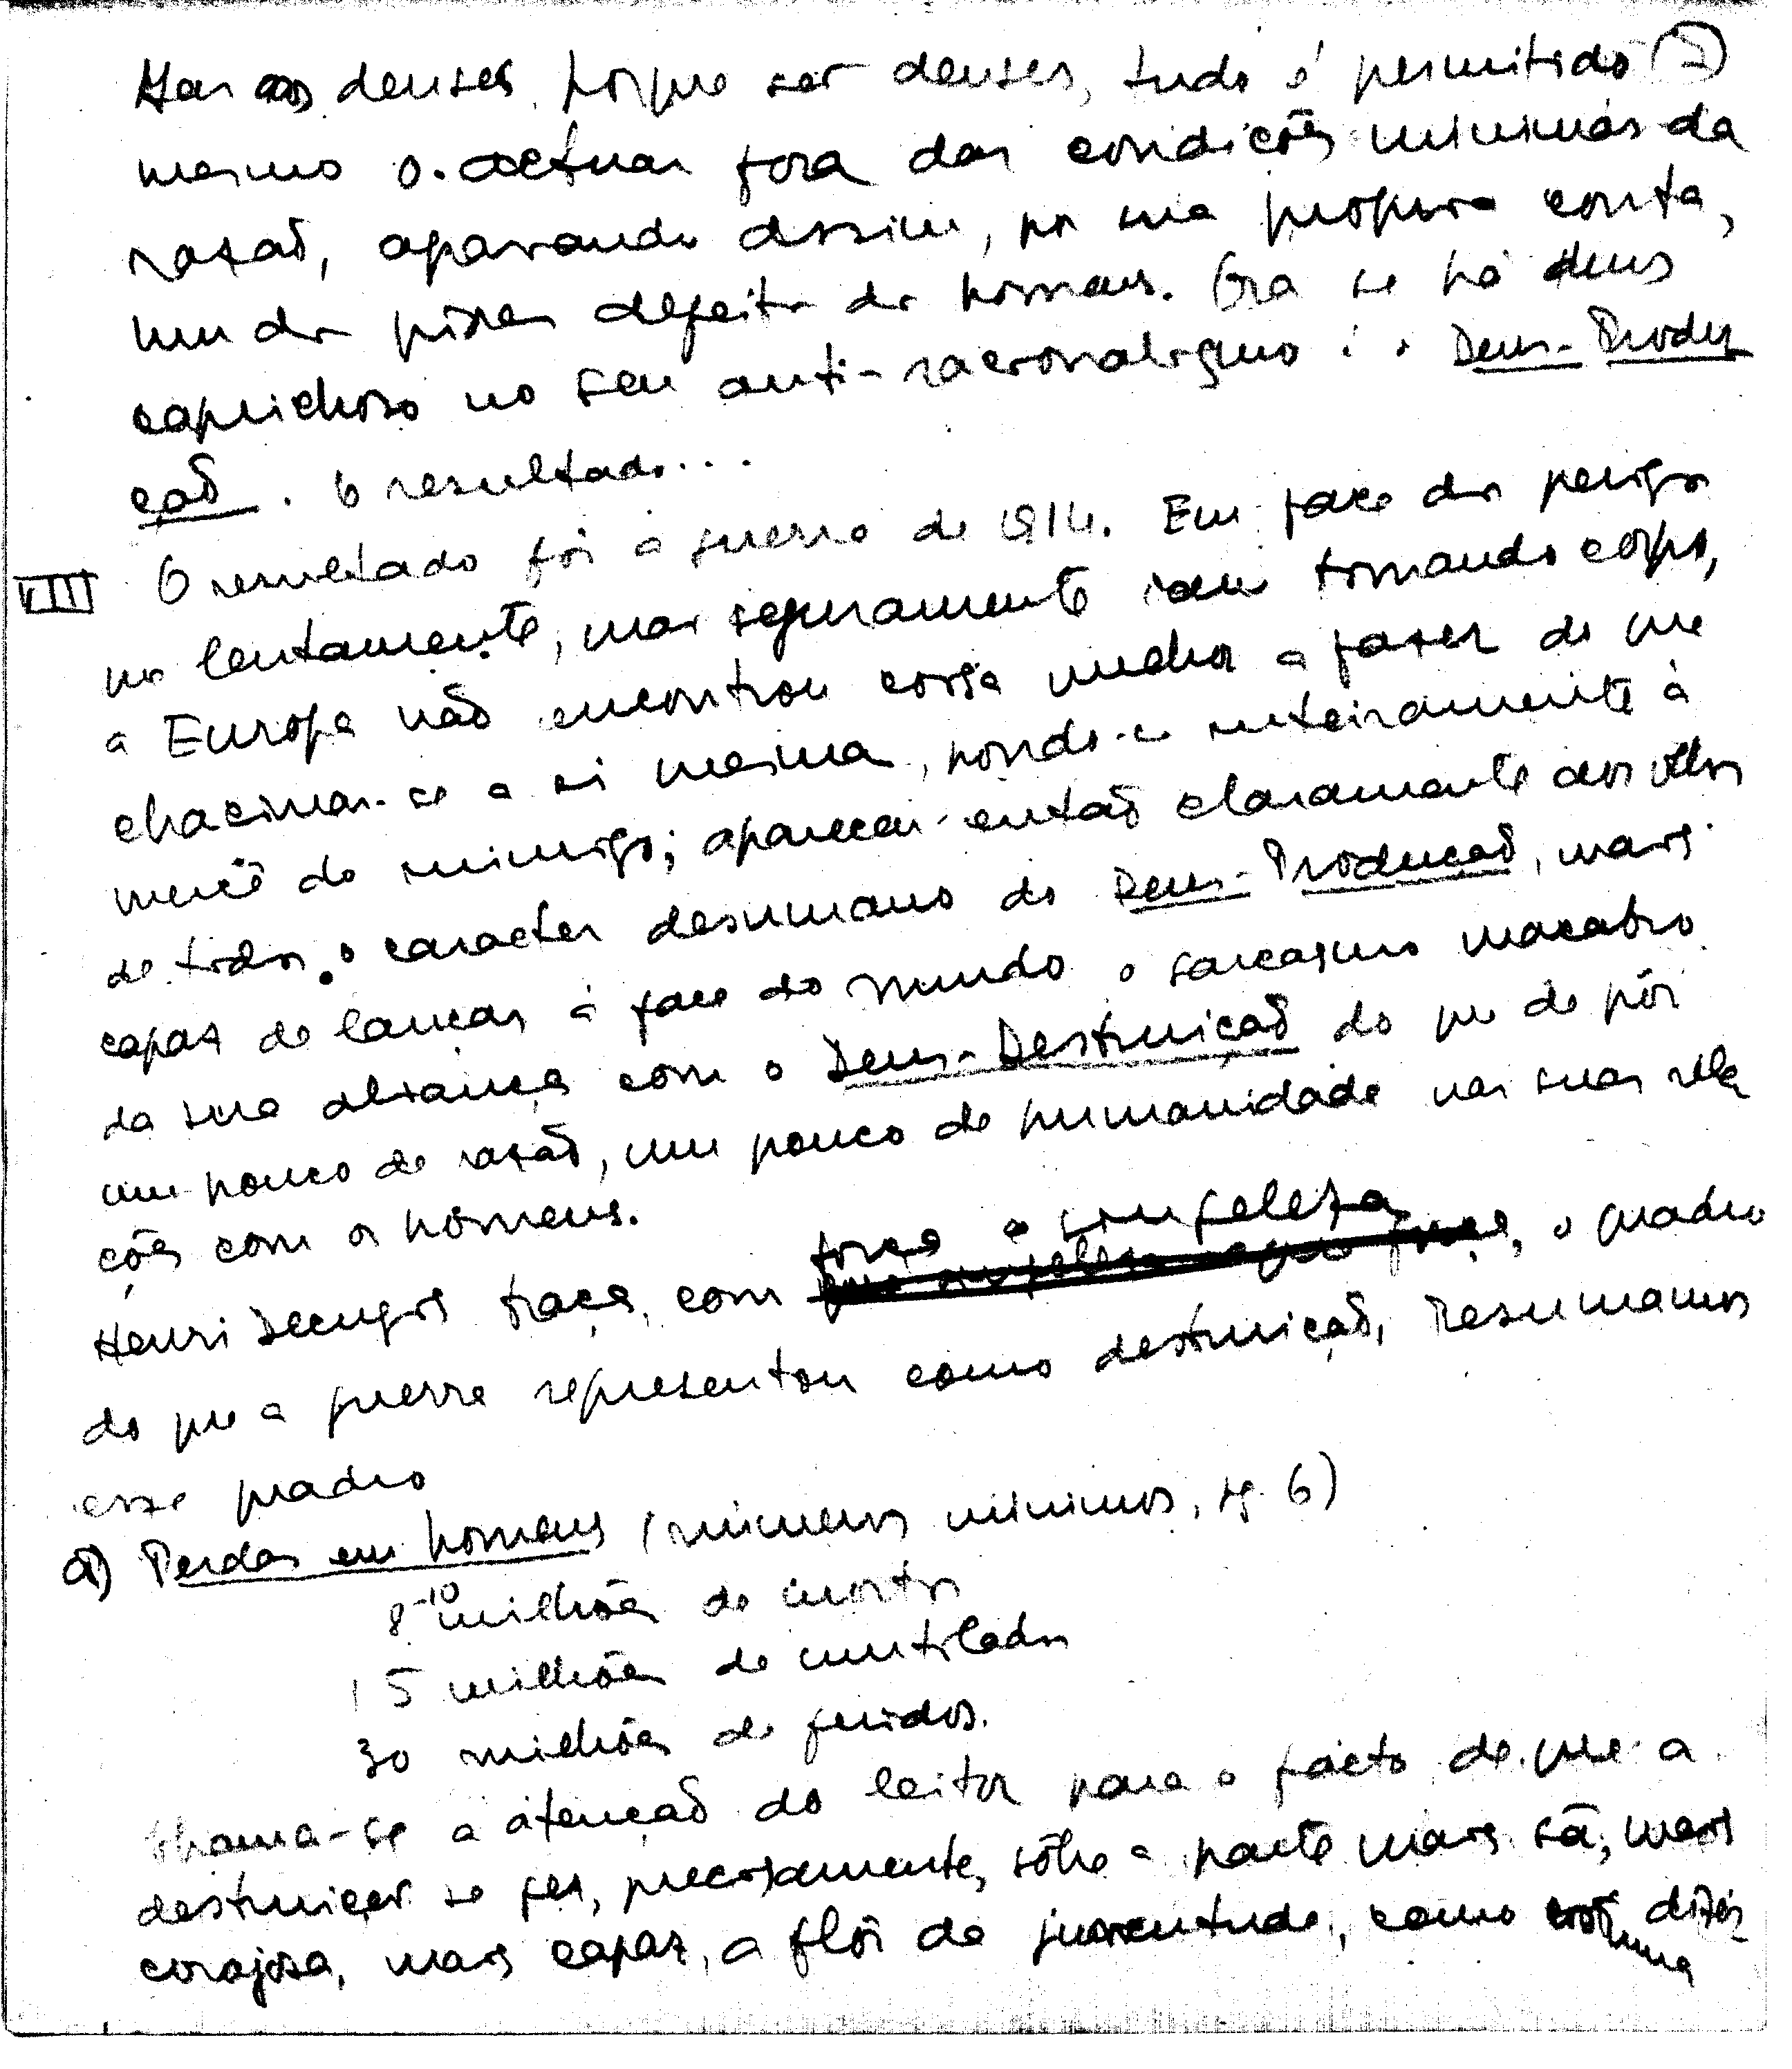 Mas aos deuses, porque são deuses, tudo é permitido
mesmo o actuar fora das condições mínimas da
razaõ, aparando assim, por sua propria conta,
um dos piores defeitos dos homens. Ora se há deus
caprichoso no seu anti-racionalismo é o Deus-Produ
çaõ. O resultado...
VIII O resultado foi a guerra de 1914. Em face dos perigos
que lentamente, mas seguramente iam tomando corpo,
a Europa naõ encontrou coisa melhor a fazer do que
chacinar-se a si mesma, pondo-se inteiramente à
mercê do inimigo; apareceu entaõ claramente aos olhos
de todos o caracter desumano do Deus-Produçaõ, mais
capaz de lançar à face do mundo o sarcasmo macabro
da sua aliança com o Deus-Destruiçaõ do que de pôr
um pouco de razaõ, um pouco de humanidade nas suas rela
ções com os homens.
Henri Decugis traça, com força e singeleza, o quadro
do que a guerra representou como destruiçaõ. Resumamos
esse quadro
a) Perdas em homens (números mínimos, pg. 6)
8-10 milhões de mortos
15 milhões de mutilados
30 milhões de feridos.
Chama-se a atençaõ do leitor para o facto de que a
destruiçaõ se fez, precisamente, sôbre a parte mais sã, mais
corajosa, mais capaz, a flôr da juventude, como costuma dizer